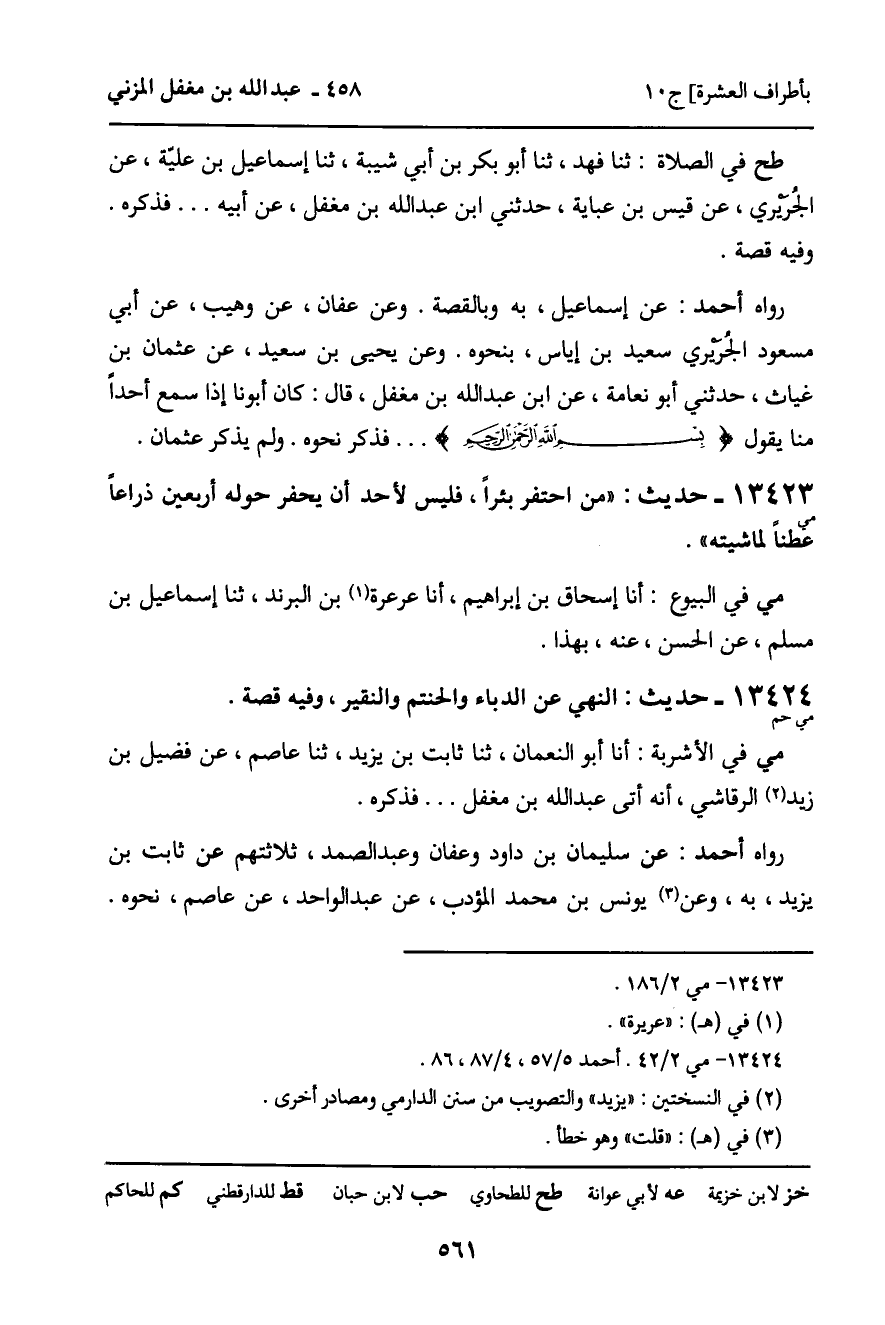 بأطراف العشرة] ج١٠
٤٥٨ ـ عبدالله بن مغفل المزني
طح في الصلاة : ثنا فهد ، ثنا أبو بكر بن أبي شيبة ، ثنا إسماعيل بن عليّة ، عن
الجُرَيْري ، عن قيس بن عباية ، حدثني ابن عبدالله بن مغفل ، عن أبيه . . . فذكره .
وفيه قصة .
رواه أحمد : عن إسماعيل ، به وبالقصة . وعن عفان ، عن وهيب ، عن أبي
مسعود الجُرَيْري سعيد بن إياس ، بنحوه . وعن يحيى بن سعيد ، عن عثمان بن
غياث ، حدثني أبو نعامة ، عن ابن عبدالله بن مغفل ، قال : كان أبونا إذا سمع أحداً
منا يقول ﴿ بِسْمِ اللَّهِ الرَّحْمَٰنِ الرَّحِيمِ ﴾ . . . فذكر نحوه . ولم يذكر عثمان .
١٣٤٢٣ ـ حديث : «من احتفر بئراً ، فليس لأحد أن يحفر حوله أربعين ذراعاً
مي
عطناً لماشيته» .
مي في البيوع : أنا إسحاق بن إبراهيم ، أنا عرعرة(١) بن البرند ، ثنا إسماعيل بن
مسلم ، عن الحسن ، عنه ، بهذا .
١٣٤٢٤ ـ حديث : النهي عن الدباء والحنتم والنقير ، وفيه قصة .
مي حم
مي في الأشربة : أنا أبو النعمان ، ثنا ثابت بن يزيد ، ثنا عاصم ، عن فضيل بن
زيد(٢) الرقاشي ، أنه أتى عبدالله بن مغفل . . . فذكره .
رواه أحمد : عن سليمان بن داود وعفان وعبدالصمد ، ثلاثتهم عن ثابت بن
يزيد ، به ، وعن(٣) يونس بن محمد المؤدب ، عن عبدالواحد ، عن عاصم ، نحوه .
١٣٤٢٣– مي ١٨٦/٢ .
(١) في (هـ) : «عريرة» .
١٣٤٢٤– مي ٤٢/٢ . أحمد ٥٧/٥ ، ٨٧/٤ ، ٨٦ .
(٢) في النسختين : «يزيد» والتصويب من سنن الدارمي ومصادر أخرى .
(٣) في (هـ) : «قلت» وهو خطأ .
خز لابن خزيمة عه لأبي عوانة طح للطحاوي حب لابن حبان قط للدارقطني كم للحاكم
٥٦١